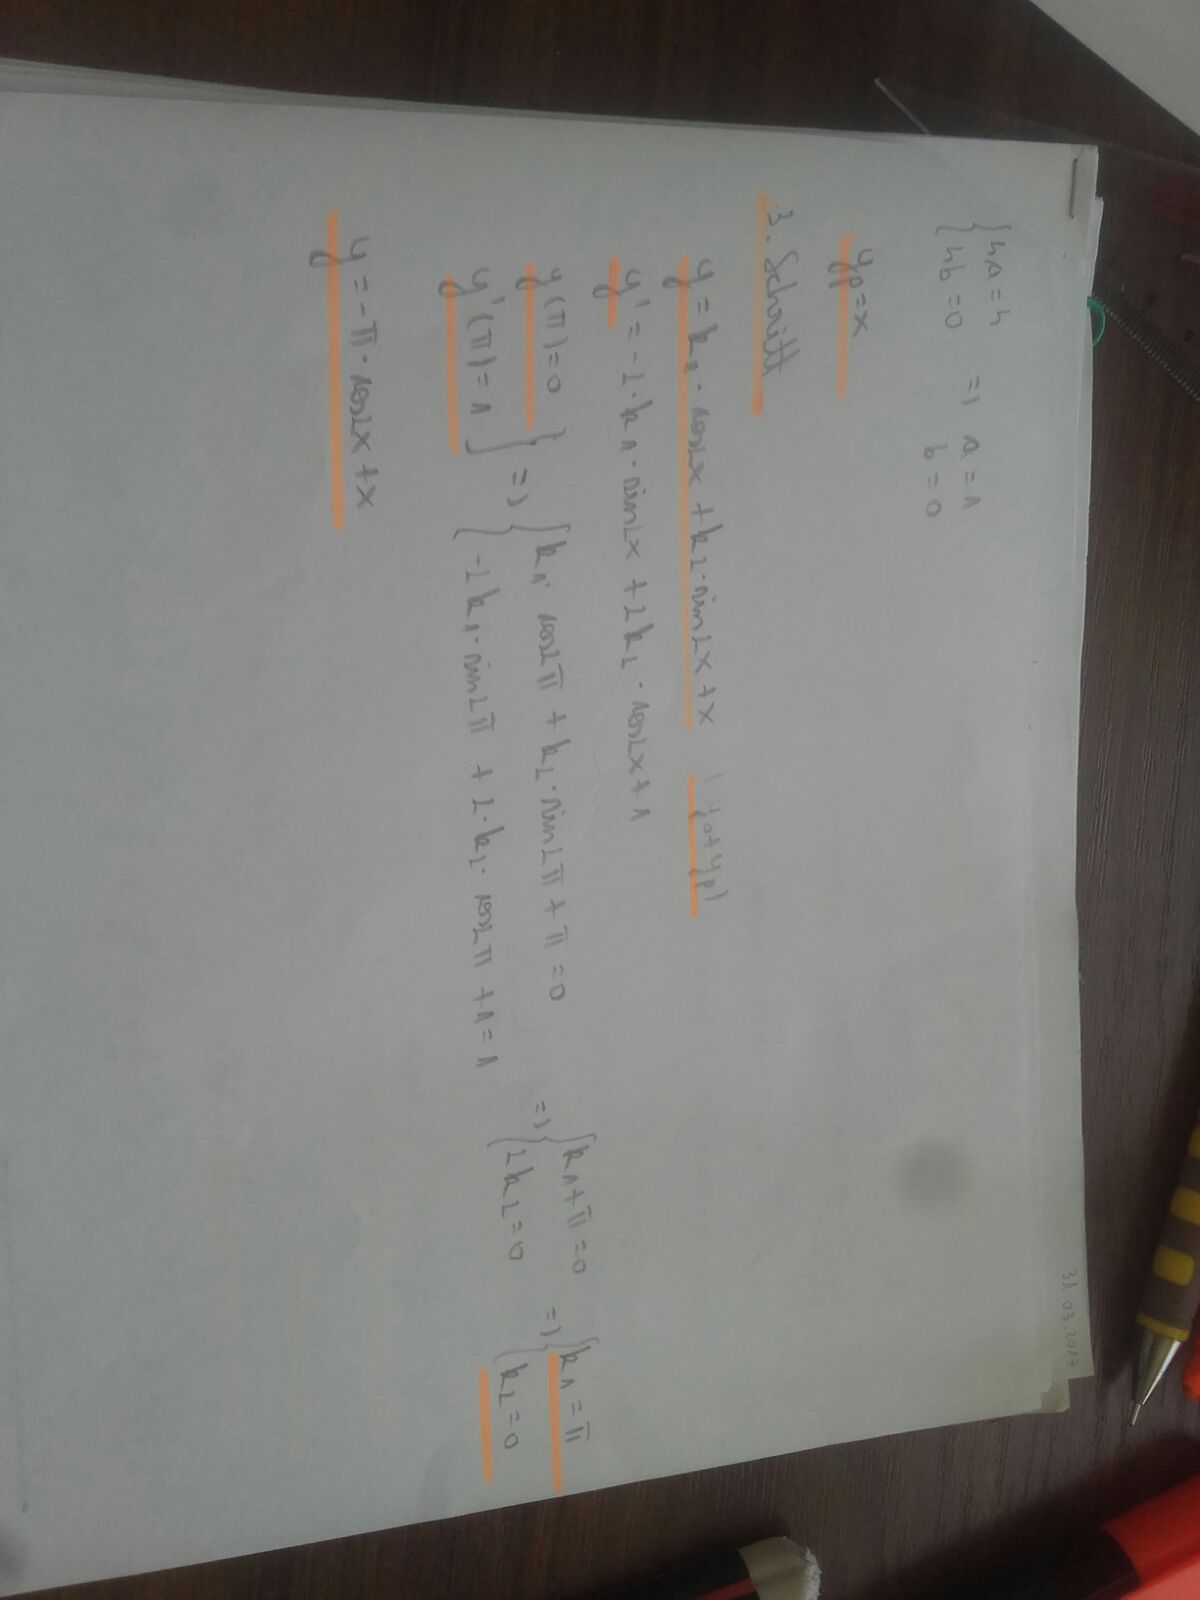 31.03.2017
{4a=4
{4b=0 => a=1
b=0
yp=x
3. Schritt
y=k1·cos2x+k2·sin2x+x (y0+yp)
y'=-2·k1·sin2x+2k2·cos2x+1
y(π)=0 } => { k1·cos2π+k2·sin2π+π=0 => { k1+π=0 => { k1=π
y'(π)=1 } { -2k1·sin2π+2·k2·cos2π+1=1 { 2k2=0 { k2=0
y=-π·cos2x+x